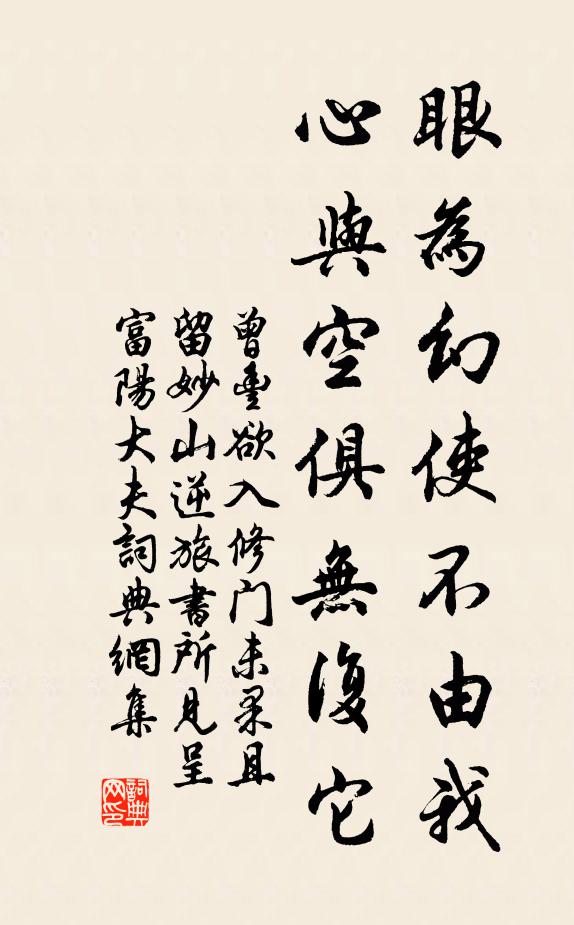 眼為幻使不由我
心與空俱無復它
曾豐欲入修门未果且
留妙山逆旅書所見呈
富陽大夫詞典網集
詞典
网印